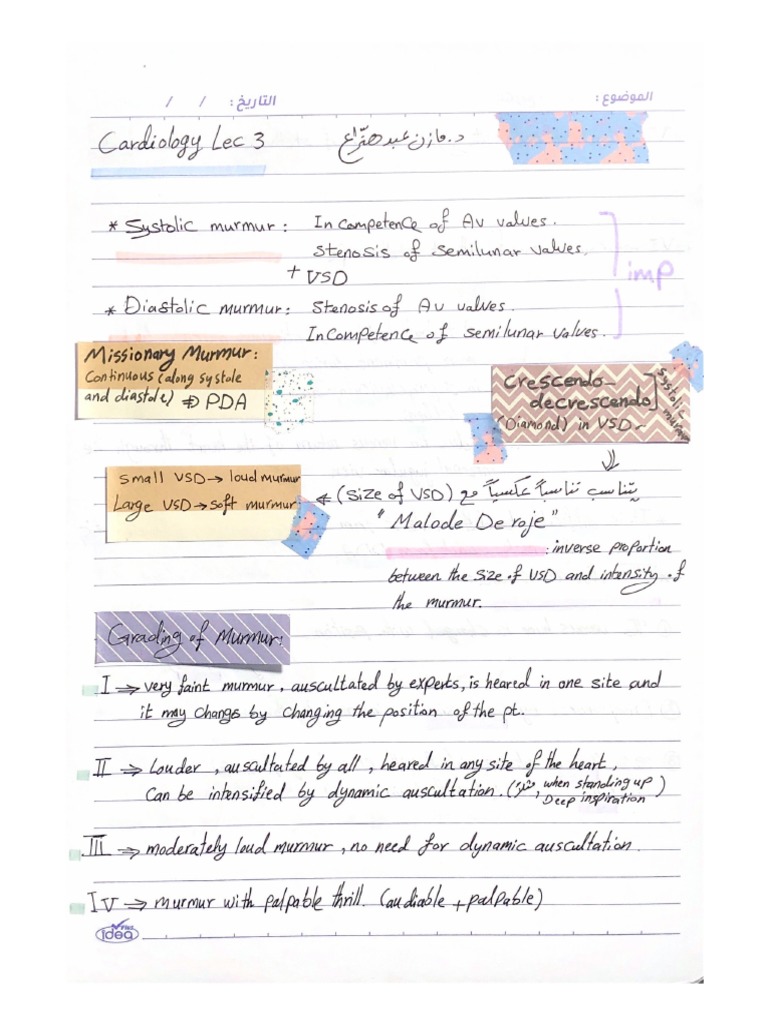 الموضوع : التاريخ : / /
Cardiology Lec 3 د. مازن عبد هزاع
* Systolic murmur : Incompetence of Av valves.
Stenosis of semilunar valves.
+ VSD
imp
* Diastolic murmur : Stenosis of Av valves.
Incompetence of semilunar valves.
Missionary Murmur :
Continuous (along systole
and diastole) ⇒ PDA
Crescendo-
decrescendo
(Diamond) in VSD
Systolic murmur
Small VSD → loud murmur
Large VSD → soft murmur
يتناسب تناسباً عكسياً مع (Size of VSD)
"Malode De roje"
: inverse proportion
between the size of VSD and intensity of
the murmur.
Grading of Murmur :
I ⇒ very faint murmur, auscultated by experts, is heared in one site and
it may change by changing the position of the pt.
II ⇒ Louder, auscultated by all, heared in any site of the heart,
Can be intensified by dynamic auscultation. ( , when standing up
Deep inspiration )
III ⇒ moderately loud murmur, no need for dynamic auscultation.
IV ⇒ murmur with palpable thrill. (audiable + palpable)
idea